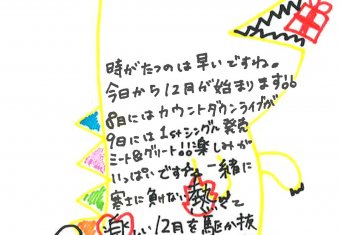 時がたつのは早いですね。
今日から12月が始まります。。
8日にはカウントダウンライブが
9日には1stシングル発売
ミート&グリート!!!楽しみが
いっぱいですね 一緒に
寒さに負けない熱いくて
楽しい12月を駆か抜